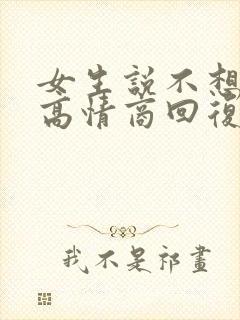 女生説不想
高情商回復
我不是祁畫